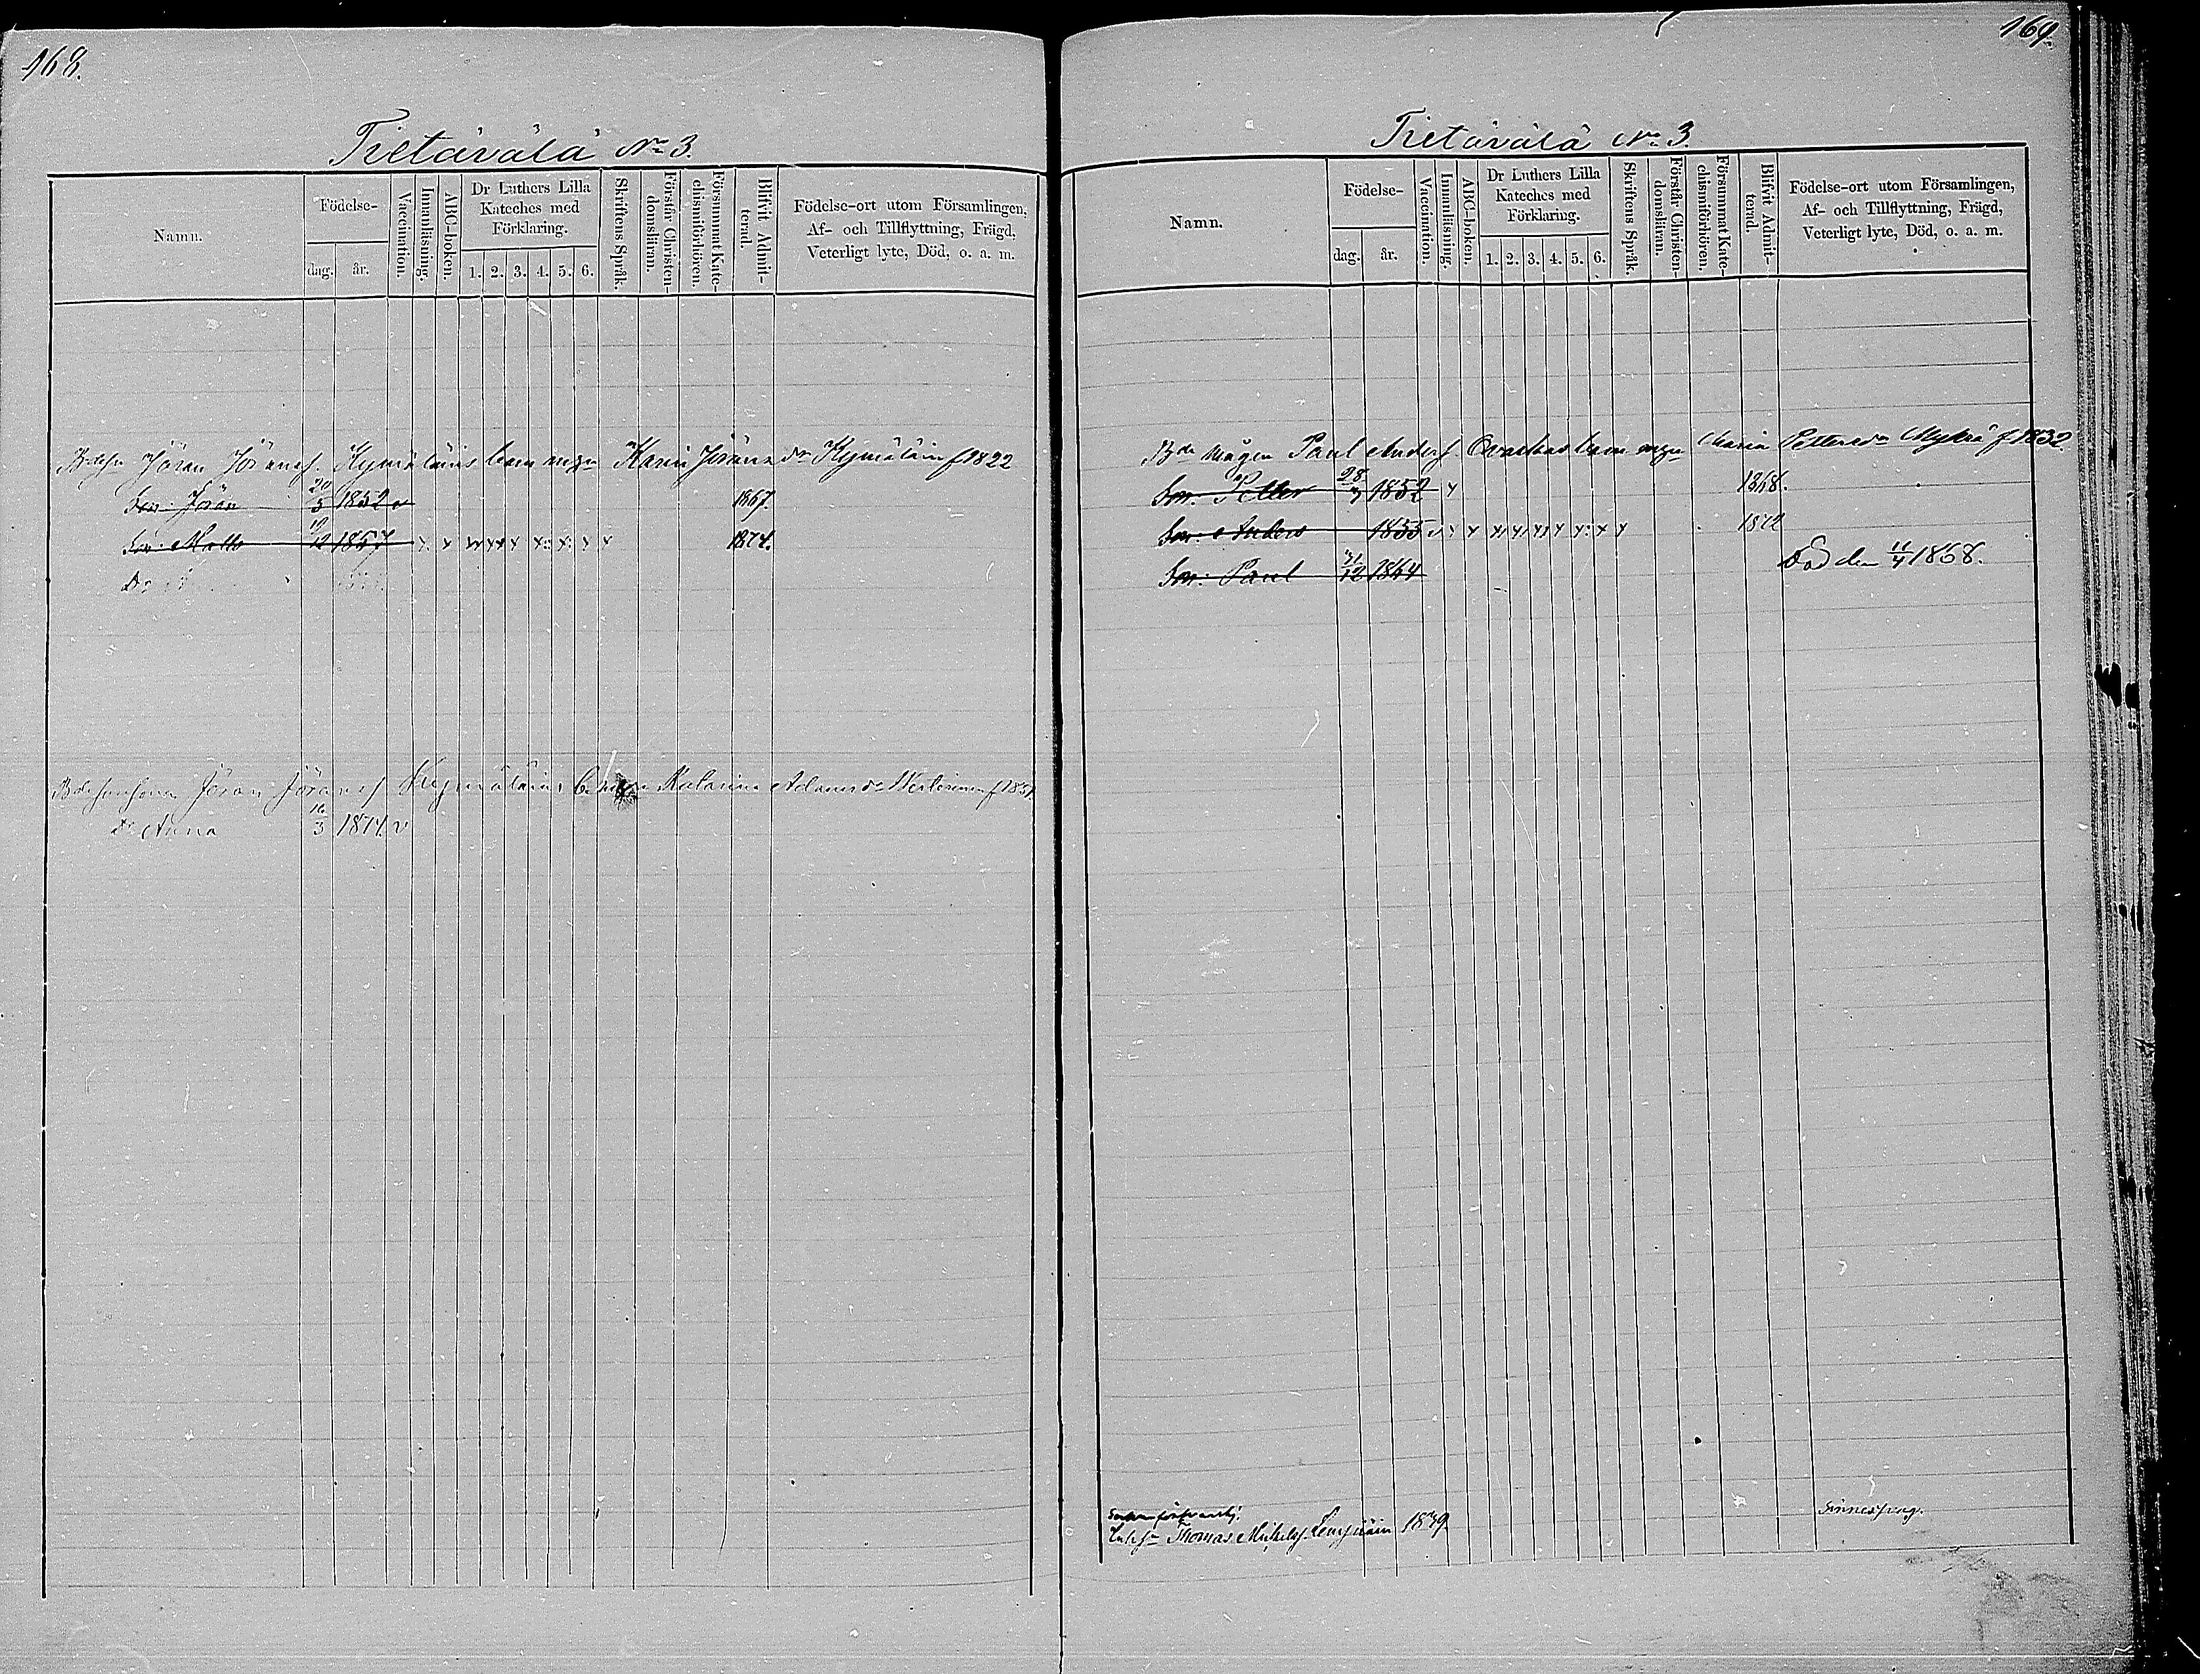 168.
Tietävälä No 3.
Namn.
Födelse-
dag.
år.
Vaccination.
Innanläsning.
ABC-boken.
Dr Luthers Lilla
Kateches med
Förklaring.
1. 2. 3. 4. 5. 6.
Skriftens Språk.
Förstår Christen-
domsläran.
Försummat Kate-
chismiförhören.
Blifvit Admit-
terad.
Födelse-ort utom Församlingen,
Af- och Tillflyttning, Frägd,
Veterligt lyte, Död, o. a. m.
Jöran Jöranss. Kymäläins barn Karin Jörans dr Kymäläin f 1822
Son: Jöran 20/5 1852 v 1867.
Son: Matts 19/12 1857 1874.
Jöran Jöranss Kymäläins Katarina Adams dr f 1851
dr Anna 16/3 1874. v
169.
Tietävälä No 3.
Namn.
Födelse-
dag.
år.
Vaccination.
Innanläsning.
ABC-boken.
Dr Luthers Lilla
Kateches med
Förklaring.
1. 2. 3. 4. 5. 6.
Skriftens Språk.
Förstår Christen-
domsläran.
Försummat Kate-
chismiförhören.
Blifvit Admit-
terad.
Födelse-ort utom Församlingen,
Af- och Tillflyttning, Frägd,
Veterligt lyte, Död, o. a. m.
Bde mågen Paul Anderss. barn Maria Petters dr Mykrä f 1832.
Son: Petter 28/7 1852 1868.
Son: Anders 1855 1872
Son: Paul 31/12 1864 Död den 11/4 1868.
Thomas Mickelss. 1839.
Sinnessvag.